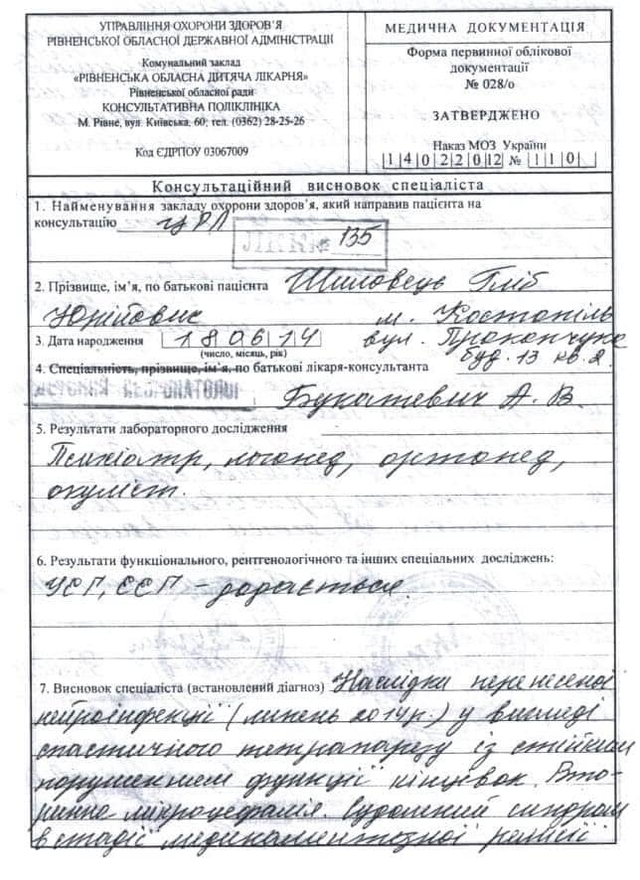 УПРАВЛІННЯ ОХОРОНИ ЗДОРОВ'Я
РІВНЕНСЬКОЇ ОБЛАСНОЇ ДЕРЖАВНОЇ АДМІНІСТРАЦІЇ
Комунальний заклад
«РІВНЕНСЬКА ОБЛАСНА ДИТЯЧА ЛІКАРНЯ»
Рівненської обласної ради
КОНСУЛЬТАТИВНА ПОЛІКЛІНІКА
М. Рівне, вул. Київська, 60; тел. (0362) 28-25-26
Код ЄДРПОУ 03067009
МЕДИЧНА ДОКУМЕНТАЦІЯ
Форма первинної облікової
документації
№ 028/о
ЗАТВЕРДЖЕНО
Наказ МОЗ України
14022012 № 110
Консультаційний висновок спеціаліста
1. Найменування закладу охорони здоров'я, який направив пацієнта на
консультацію ЦРЛ
135
2. Прізвище, ім'я, по батькові пацієнта Шиловець Гліб
Юрійович м. Костопіль
3. Дата народження 180614 вул. Прокопчука
(число, місяць, рік) буд. 13 кв. 2.
4. Спеціальність, прізвище, ім'я, по батькові лікаря-консультанта
Букатевич А. В.
5. Результати лабораторного дослідження
Психіатр, логопед, ортопед,
окуліст.
6. Результати функціонального, рентгенологічного та інших спеціальних досліджень:
УСГ, ЄЄГ – додається.
7. Висновок спеціаліста (встановлений діагноз) Наслідки перенесеної
нейроінфекції (липень 2014р.) у вигляді
спастичного тетрапарезу із стійким
порушенням функції кінцівок. Вто-
ринна мікроцефалія. Судомний синдром
в стадії медикаментозної ремісії